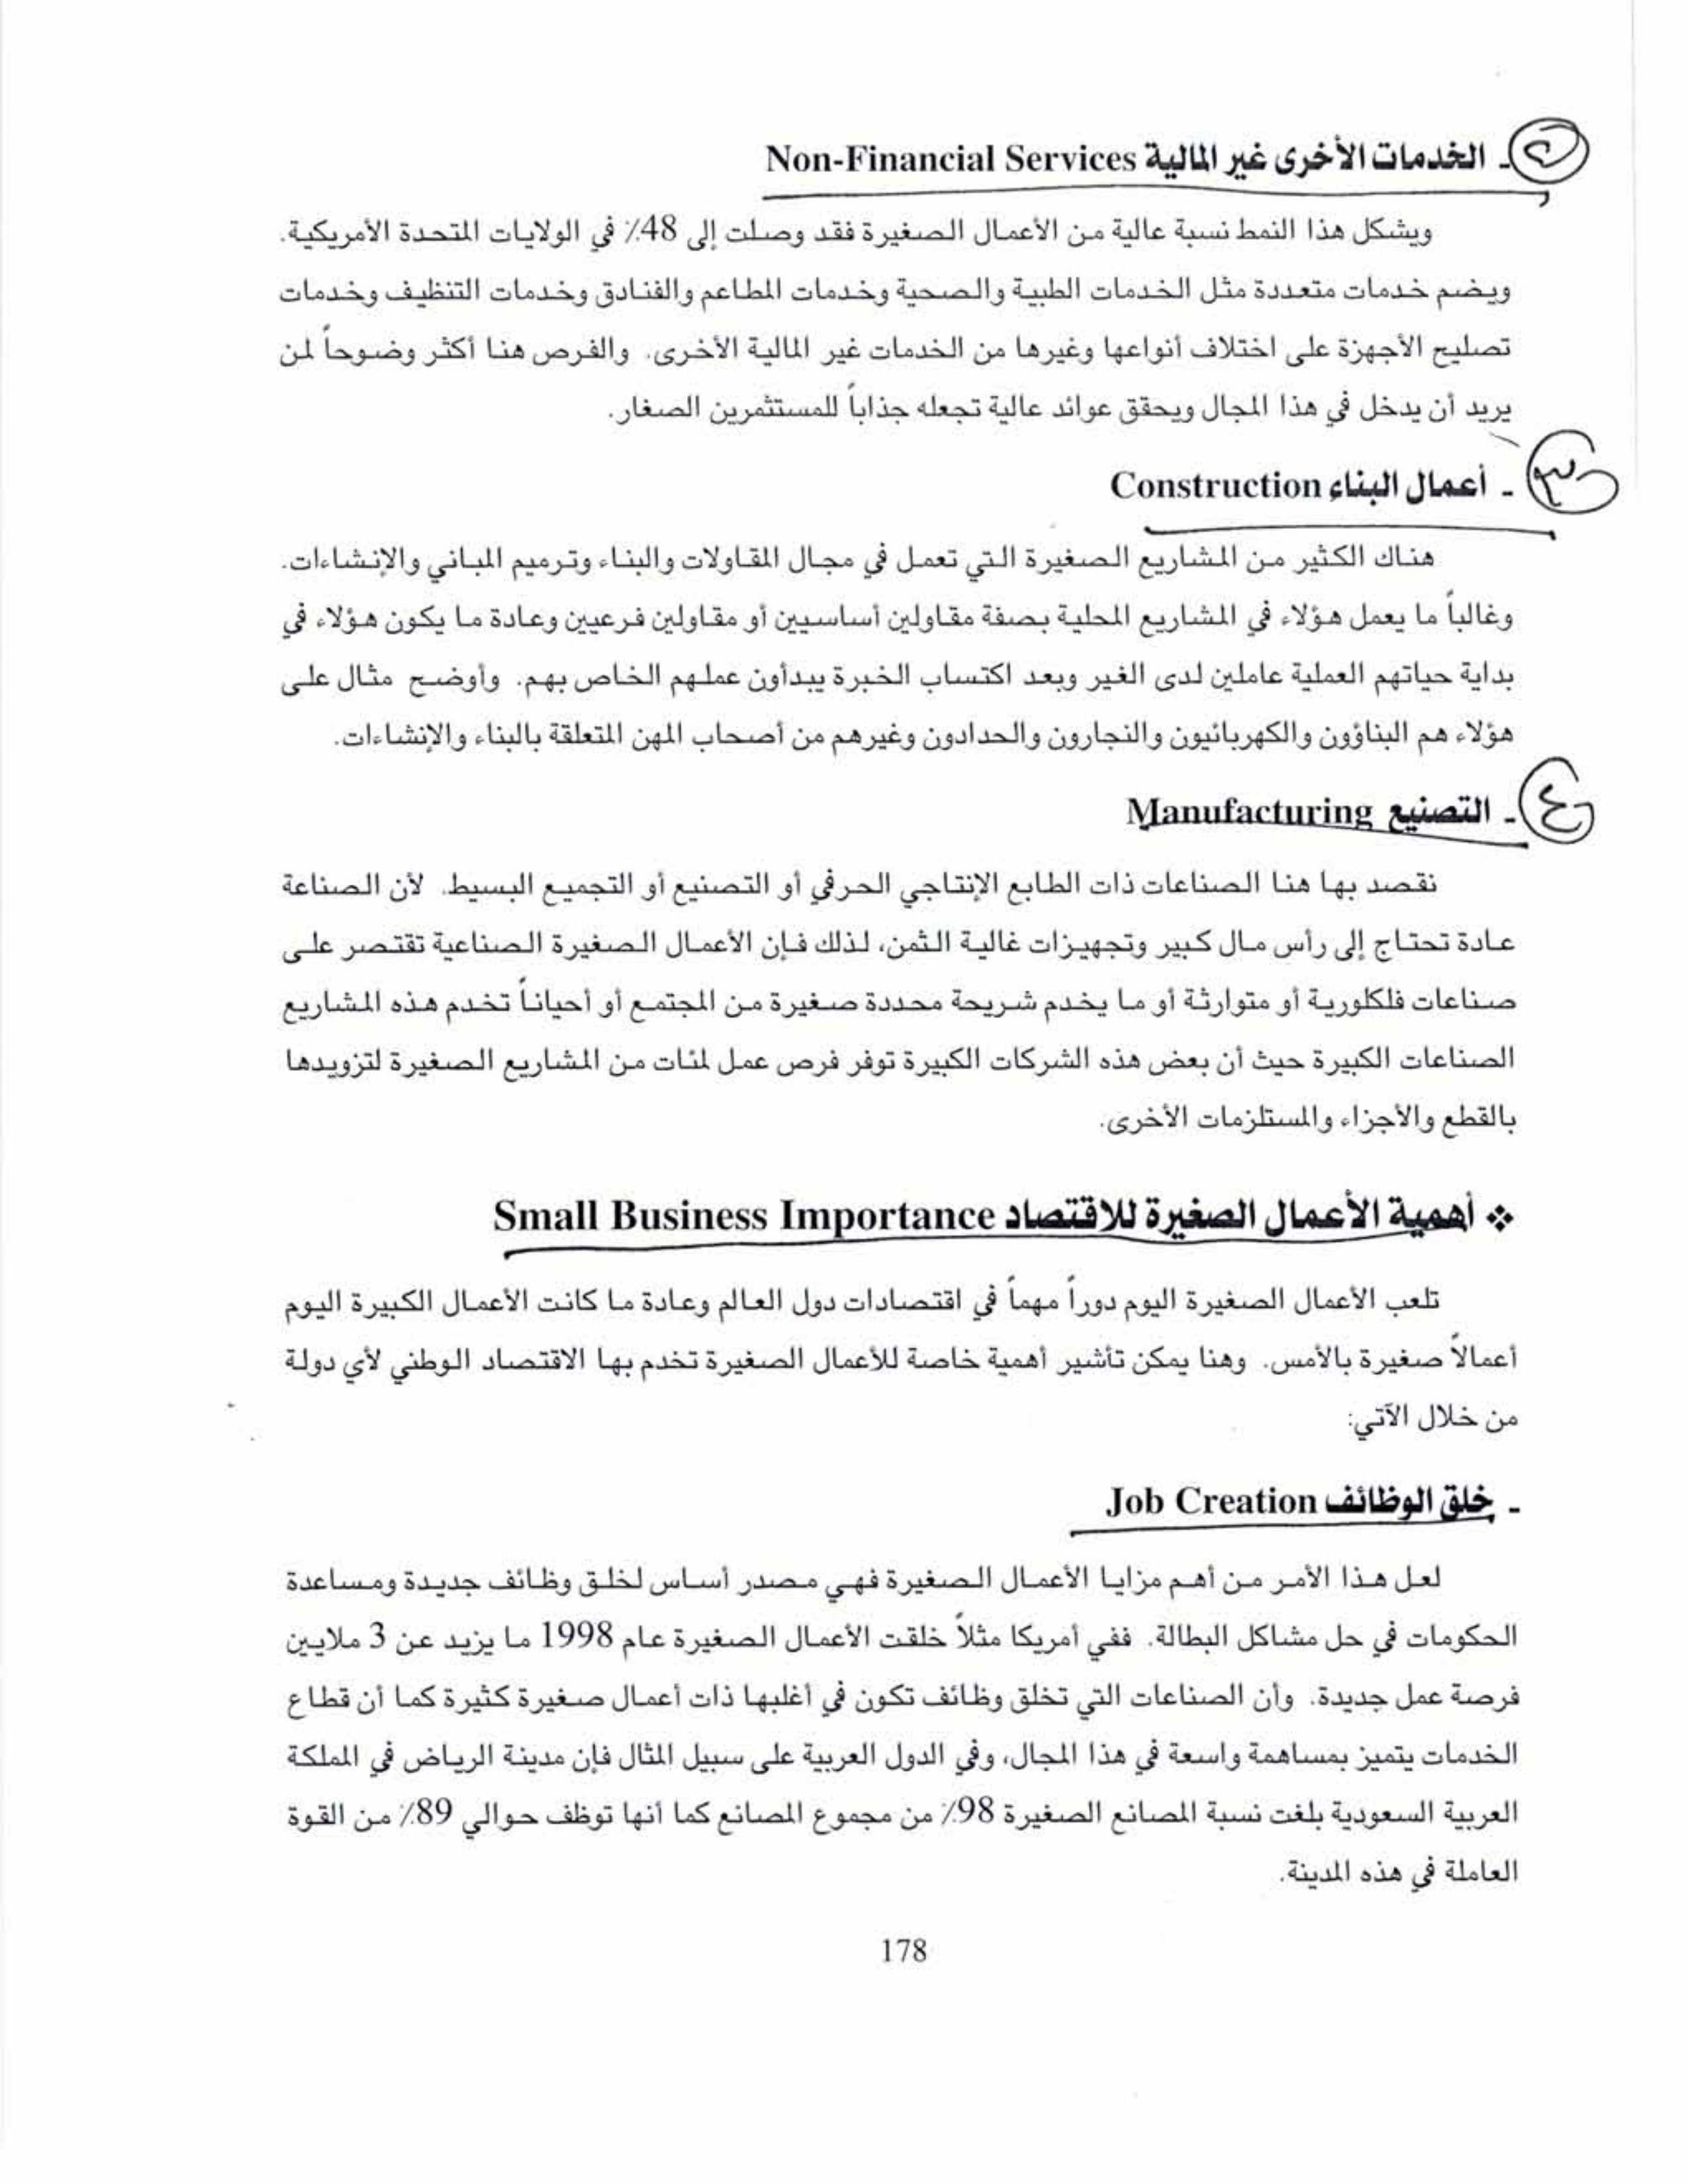 ٢ - الخدمات الأخرى غير المالية Non-Financial Services
ويشكل هذا النمط نسبة عالية من الأعمال الصغيرة فقد وصلت إلى 48٪ في الولايات المتحدة الأمريكية.
ويضم خدمات متعددة مثل الخدمات الطبية والصحية وخدمات المطاعم والفنادق وخدمات التنظيف وخدمات
تصليح الأجهزة على اختلاف أنواعها وغيرها من الخدمات غير المالية الأخرى. والفرص هنا أكثر وضوحاً لمن
يريد أن يدخل في هذا المجال ويحقق عوائد عالية تجعله جذاباً للمستثمرين الصغار.
٣ - أعمال البناء Construction
هناك الكثير من المشاريع الصغيرة التي تعمل في مجال المقاولات والبناء وترميم المباني والإنشاءات.
وغالباً ما يعمل هؤلاء في المشاريع المحلية بصفة مقاولين أساسيين أو مقاولين فرعيين وعادة ما يكون هؤلاء في
بداية حياتهم العملية عاملين لدى الغير وبعد اكتساب الخبرة يبدأون عملهم الخاص بهم. وأوضح مثال على
هؤلاء هم البناؤون والكهربائيون والنجارون والحدادون وغيرهم من أصحاب المهن المتعلقة بالبناء والإنشاءات.
٤ - التصنيع Manufacturing
نقصد بها هنا الصناعات ذات الطابع الإنتاجي الحرفي أو التصنيع أو التجميع البسيط. لأن الصناعة
عادة تحتاج إلى رأس مال كبير وتجهيزات غالية الثمن، لذلك فإن الأعمال الصغيرة الصناعية تقتصر على
صناعات فلكلورية أو متوارثة أو ما يخدم شريحة محددة صغيرة من المجتمع أو أحياناً تخدم هذه المشاريع
الصناعات الكبيرة حيث أن بعض هذه الشركات الكبيرة توفر فرص عمل لمئات من المشاريع الصغيرة لتزويدها
بالقطع والأجزاء والمستلزمات الأخرى.
❖ أهمية الأعمال الصغيرة للاقتصاد Small Business Importance
تلعب الأعمال الصغيرة اليوم دوراً مهماً في اقتصادات دول العالم وعادة ما كانت الأعمال الكبيرة اليوم
أعمالاً صغيرة بالأمس. وهنا يمكن تأشير أهمية خاصة للأعمال الصغيرة تخدم بها الاقتصاد الوطني لأي دولة
من خلال الآتي:
- خلق الوظائف Job Creation
لعل هذا الأمر من أهم مزايا الأعمال الصغيرة فهي مصدر أساس لخلق وظائف جديدة ومساعدة
الحكومات في حل مشاكل البطالة. ففي أمريكا مثلاً خلقت الأعمال الصغيرة عام 1998 ما يزيد عن 3 ملايين
فرصة عمل جديدة. وأن الصناعات التي تخلق وظائف تكون في أغلبها ذات أعمال صغيرة كثيرة كما أن قطاع
الخدمات يتميز بمساهمة واسعة في هذا المجال، وفي الدول العربية على سبيل المثال فإن مدينة الرياض في المملكة
العربية السعودية بلغت نسبة المصانع الصغيرة 98٪ من مجموع المصانع كما أنها توظف حوالي 89٪ من القوة
العاملة في هذه المدينة.
178